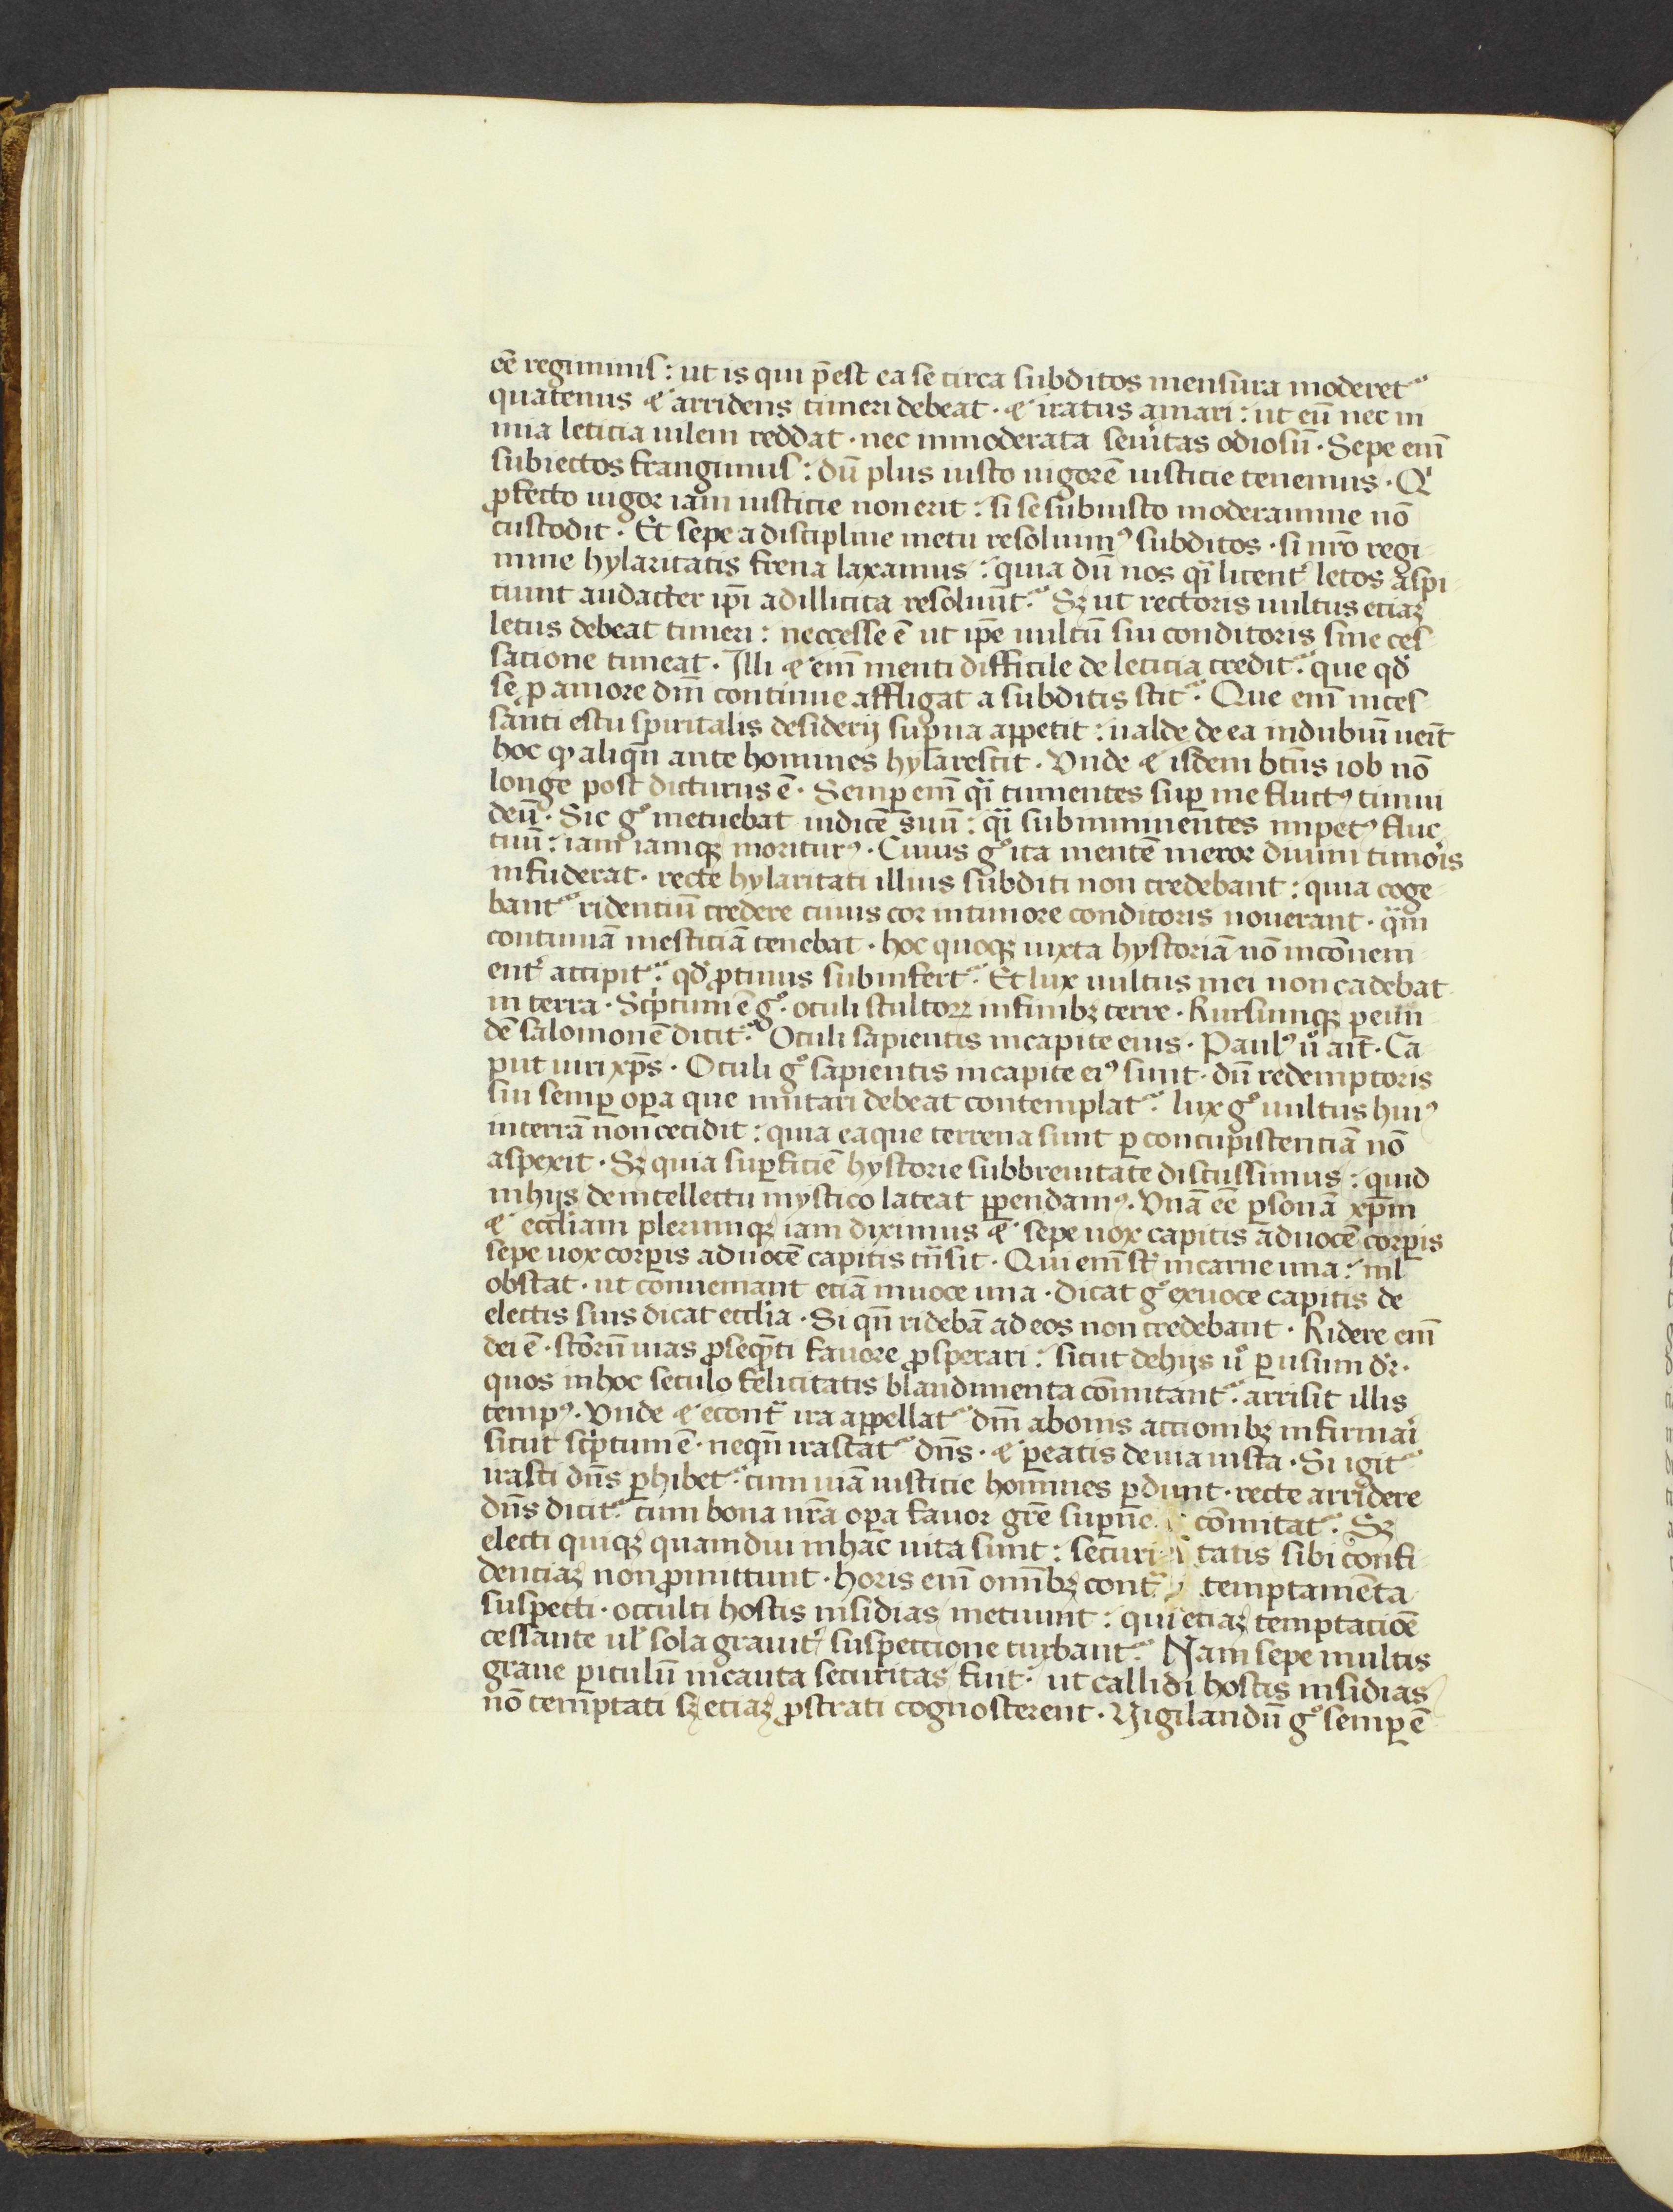 eē regiminis: ut is qui p̄est ea se circa subditos mensura moderet᷑
quatenus ⁊ arridens timeri debeat · ⁊ iratus amari: ut eū nec ni
mia leticia uilem reddat · nec inmoderata seu̾itas odiosū · Sepe eni᷑
subiectos frangimus: dū plus iusto uigorē iusticie tenemus · Qͥ
ꝓfecto uigor iam iusticie non erit: si se sub iusto moderamine nō
custodit · Et sepe a discipline metu resoluimꝰ subditos · si nr̄o regi
mine hylaritatis frena laxamus: quia dū nos q̈i licent̾ letos aspi
ciunt audacter ip̄i ad illicita resoluūt᷑. Sꝫ ut rectoris uultus etiaꝫ
letus debeat timeri: neccesse ē ut ip̄e uultū sui conditoris sine ces
satione timeat · Illi ⁊ eni᷑ menti difficile de leticia credit᷑. que qd̾
se ꝓ amore dn̄i continue affligat a subditis scit᷑. Que eni᷑ inces
santi estu spiritalis desiderij supna appetit: ualde de ea in dubiū uēit
hoc ꝙ aliqn̄ ante homines hylarescit · Vnde ⁊ isdem bt̄us iob nō
longe post dicturus ē · Semꝑ eni᷑ q̈i tumentes suꝑ me fluctꝰ timui
deū · Sic gͦ metuebat iudicē suū: q̈i subinminentes impetꝰ fluc
tuū: iam iamqꝫ moriturꝰ · Cuius gͦ ita mentē meror diuini timoris
infuderat · recte hylaritati illius subditi non credebant: quia coge
bant᷑ ridentiū credere cuius cor in timore conditoris nouerant · q̈m
continuā mesticiā tenebat · hoc quoqꝫ iuxta hystoriā nō incōueni
ent̾ accipit᷑. qd̾ ꝓtinus subinfert᷑. Et lux uultus mei non cadebat
in terra · Scͥptum ē gͦ · oculi stultoꝝ in finibꝫ terre · Rursumqꝫ ꝑ eun
dē salomonē dicit᷑. Oculi sapientis in capite eius · Paulꝰ uͦ ait · Ca
put uiri xp̄s · Oculi gͦ sapientis in capite eiꝰ sunt · dū redemptoris
sui semꝑ oꝑa que imitari debeat contemplat᷑. lux gͦ uultus huiꝰ
in terrā non cecidit: quia ea que terrena sunt ꝑ concupiscentiā nō
aspexit · Sꝫ quia suꝑficiē hystorie sub breuitate discussimus: quid
in hijs de intellectu mystico lateat ꝑpendamꝰ. Vnā eē ꝑsonā xp̄m
⁊ eccl̄iam plerumqꝫ iam diximus ⁊ sepe uox capitis ad uocē corꝑis
sepe uox corꝑis ad uocē capitis trᷓsit · Qui eni᷑ st̾ in carne una: nil̾
obstat · ut conueniant etiā in uoce una · Dicat gͦ ex uoce capitis de
electis suis dicat eccl̄ia · Si qn̄ ridebā ad eos non credebant · Ridere eni᷑
dei ē · sc̄orū uias ꝓseq̄nti fauore ꝓsperari: sicut de hijs uͦ ꝑ usum dr̄ ·
quos in hoc seculo felicitatis blandimenta cōmitant᷑. arrisit illis
tempꝰ · Vnde ⁊ econt̾ ira appellat᷑ dn̄i a bonis actionibꝫ infirmari
sicut scͥptum ē · nequn̄ irascat᷑ dn̄s · ⁊ ꝑeatis de uia iusta · Si igit᷑
irasci dn̄s ꝑhibet᷑. cum uiā iusticie homines ꝑdunt · recte arridere
dn̄s dicit᷑. cum bona nr̄a oꝑa fauor gr̄e supne cōmitat᷑. Sꝫ
electi quiqꝫ quamdiu in hac uita sunt: securi tatis sibi confi
dentiaꝫ non ꝓmittunt · horis eni᷑ om̄ibꝫ cont̾ temptamēta
suspecti · occulti hostis insidias metuunt: qui etiaꝫ temptatiōe
cessante ul̾ sola grauit̾ suspectione turbant᷑. Nam sepe multis
graue ꝑiculū incauta securitas fuit · ut callidi hostis insidias
nō temptati sꝫ etiaꝫ ꝓstrati cognoscerent · Vigilandū gͦ semꝑ ē